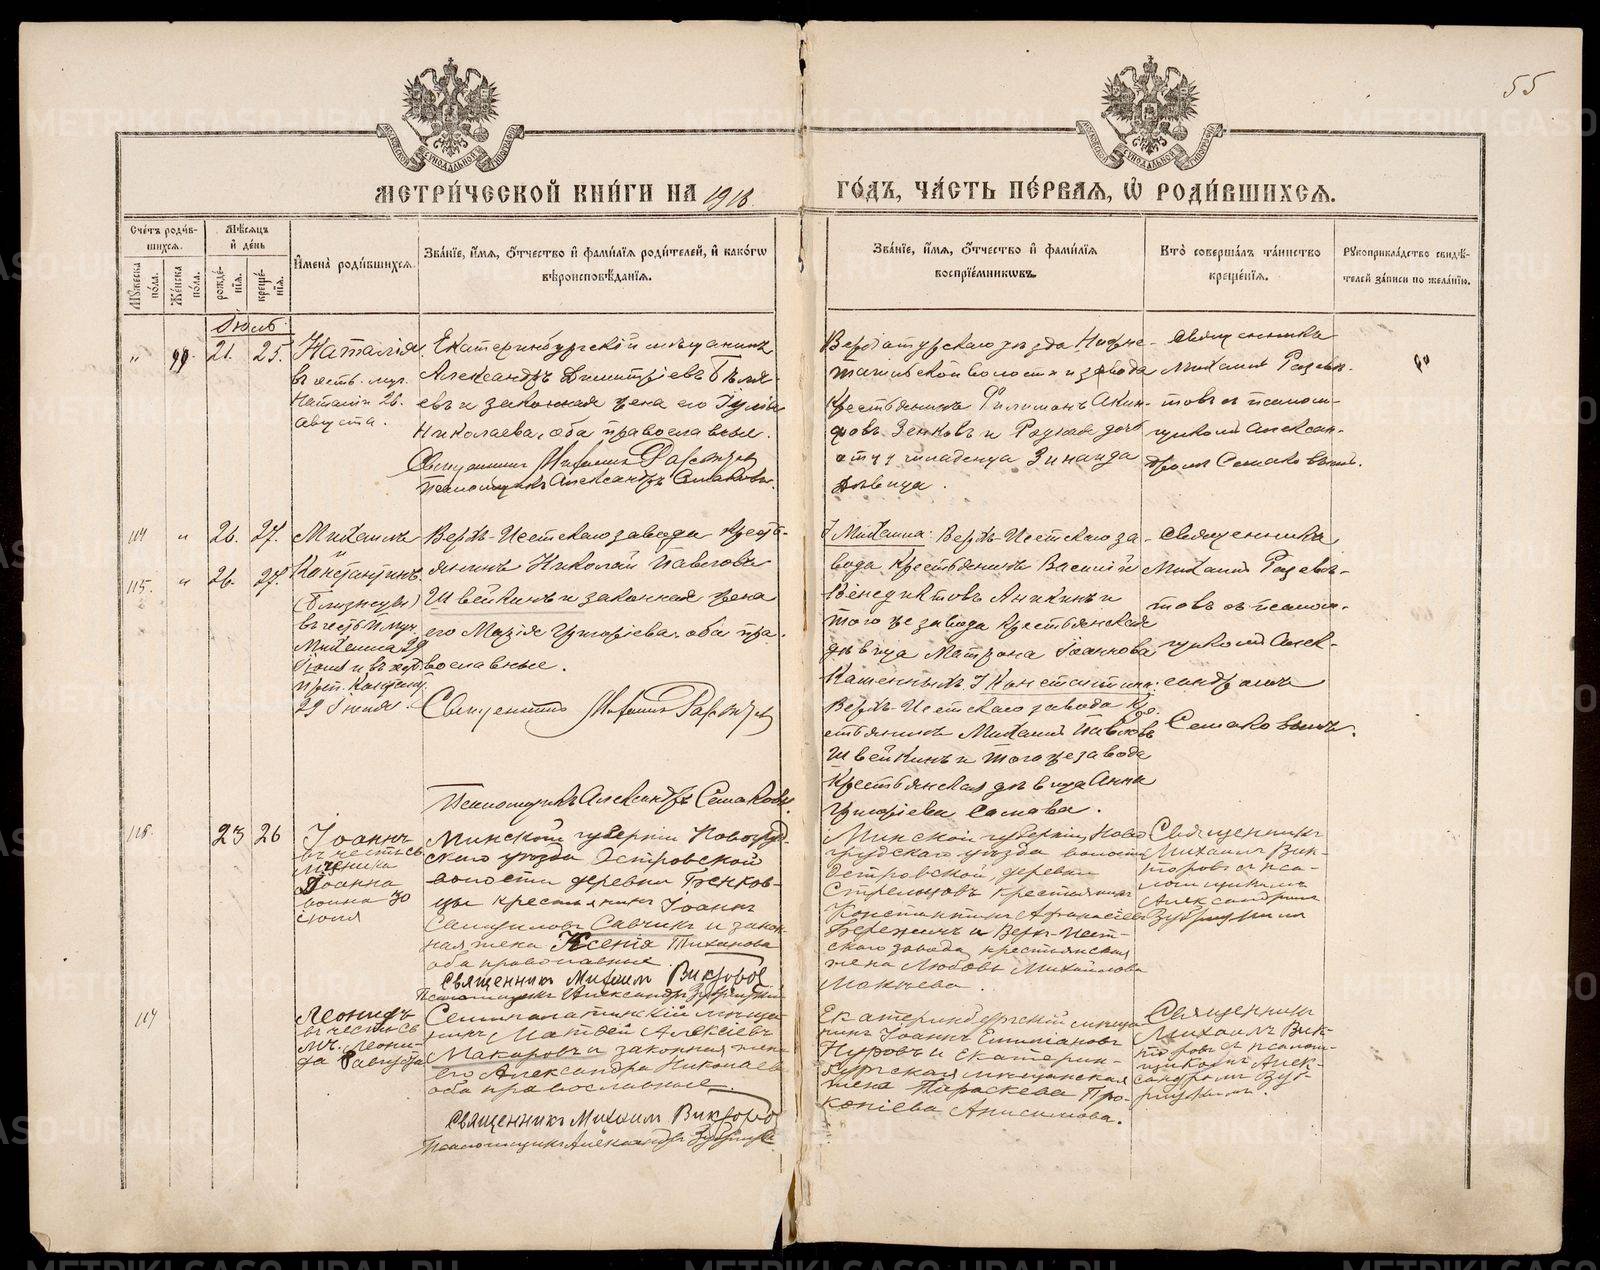 55
МЕТРИ́ЧЕСКОЙ КНИ́ГИ НА 1918
ГО́ДЪ, ЧА́СТЬ ПЕ́РВАЯ, Ѽ РОДИ́ВШИХСЯ.
Сче́тъ роди́в-
шихся.
Мѣ́сяцъ
и҆ де́нь
Му́жеска
по́ла.
Же́нска
по́ла.
рожде́-
нїѧ.
креще́-
нїѧ.
И҆мена̀ роди́вшихся.
Зва́нїе, и҆́мѧ, ѻ҆́тчество и҆ фами́лїѧ роди́телей, и҆ како́гѡ
вѣроисповѣ́данїѧ.
Зва́нїе, и҆́мѧ, ѻ҆́тчество и҆ фами́лїѧ
воспрїе́мникѡвъ.
Кто̀ соверша́лъ та́инство
креще́нїѧ.
Рꙋкоприкла́дство свидѣ́-
телей за́писи по жела́нїю.
Іюль
„ 99. 21. 25.
Наталія
въ честь муч.
Наталіи 26.
Августа.
Екатеринбургскій мѣщанинъ
Александръ Димитріевъ Бѣля-
евъ и законная жена его Юлія
Николаева, оба православные.
Священникъ Михаилъ
Псаломщикъ Александръ Семаковъ.
Верхотурскаго уѣзда Нижне-
тагильской волости и завода
крестьянинъ Филимонъ Акин-
фовъ Зенковъ и родная дочь
отца младенца Зинаида
дѣвица.
Священникъ
Михаилъ
товъ съ псалом-
щикомъ Алексан-
дромъ Семаковымъ.
114 „ 26. 27.
115. „ 26. 27.
Михаилъ
и
Константинъ
(близнецы)
въ честь муч.
Михаила 29
Верхъ-Исетскаго завода кресть-
янинъ Николай Павловъ
Швейкинъ и законная жена
его Марія Григоріева, оба пра-
вославные.
Священникъ Михаилъ
Псаломщикъ Александръ Семаковъ.
У Михаила: Верхъ-Исетскаго за-
вода крестьянинъ Василій
Венедиктовъ Аникинъ и
того же завода крестьянская
дѣвица Матрона Іоаннова
У Константина:
Верхъ-Исетскаго завода кре-
стьянинъ Михаилъ Павловъ
Швейкинъ и того же завода
крестьянская дѣвица Анна
Григоріева
Священникъ
Михаилъ
товъ съ псалом-
щикомъ Алек-
сандромъ
Семаковымъ.
116. 23 26
Іоаннъ
въ честь св.
мученика
Іоанна
воина 30
іюля
Минской губерніи Новогруд-
скаго уѣзда Островской
волости деревни
крестьянинъ Іоаннъ
Самуиловъ Савчикъ и закон-
ная жена Ксенія Тихонова
оба православные.
Священникъ Михаилъ Викторовъ
Псаломщикъ Александръ
Минской губерніи Ново
грудскаго уѣзда волости
Островской, деревни
Стрельцовъ крестьянинъ
Константинъ Афанасіевъ
и Верх-Исет-
скаго завода крестьянская
жена Любовь Михайлова
Священникъ
Михаилъ Вик-
торовъ съ пса-
ломщикомъ
Александромъ
117
Леонидъ
въ честь св.
мч. Леони-
да 8 августа
Семипалатинскій мѣща-
нинъ Матвей Алексіевъ
Макаровъ и законная жена
его Александра Николаева
оба православные.
Священникъ Михаилъ Викторовъ
Псаломщикъ Александръ
Екатеринбургскій мѣща
нинъ Іоаннъ Емиліановъ
и Екатерин-
бургская мѣщанская
жена Параскева Про-
копіева Анисимова.
Священникъ
Михаилъ Вик-
торовъ съ псалом-
щикомъ Алек-
сандромъ
METRIKI.GASO-URAL.RU